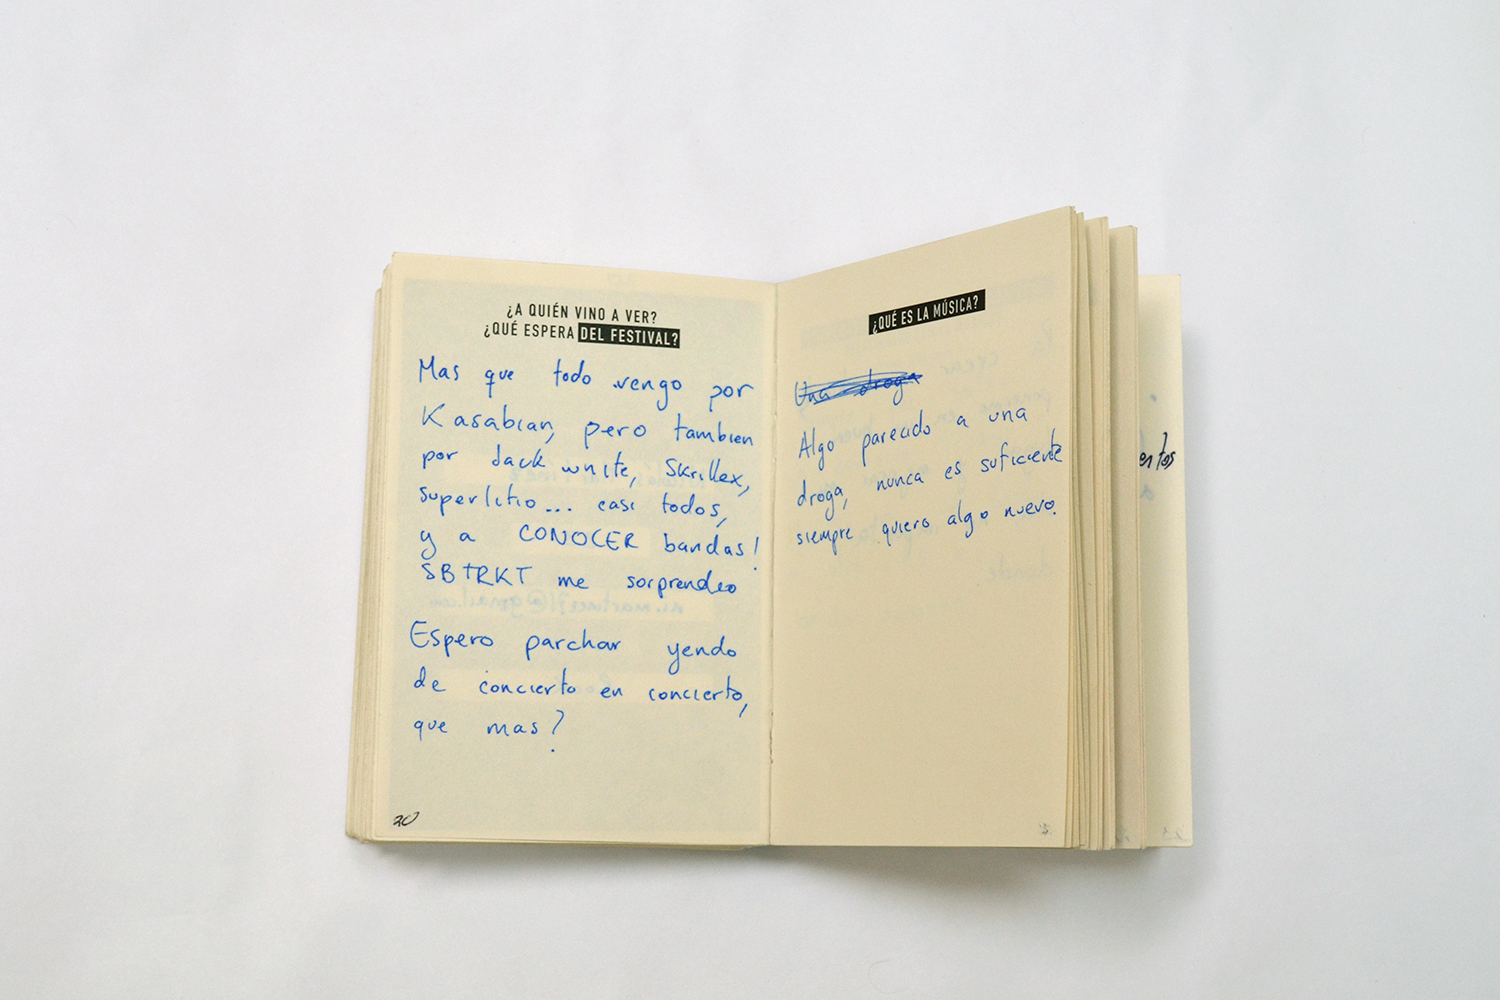 ¿A QUIÉN VINO A VER?
¿QUÉ ESPERA DEL FESTIVAL?
Mas que todo vengo por
Kasabian, pero tambien
por Jack white, Skrillex,
superlitio... casi todos,
y a CONOCER bandas!
SBTRKT me sorprendio
Espero parchar yendo
de concierto en concierto,
que mas?
20
¿QUÉ ES LA MÚSICA?
Una droga
Algo parecido a una
droga, nunca es suficiente
siempre quiero algo nuevo.
entos